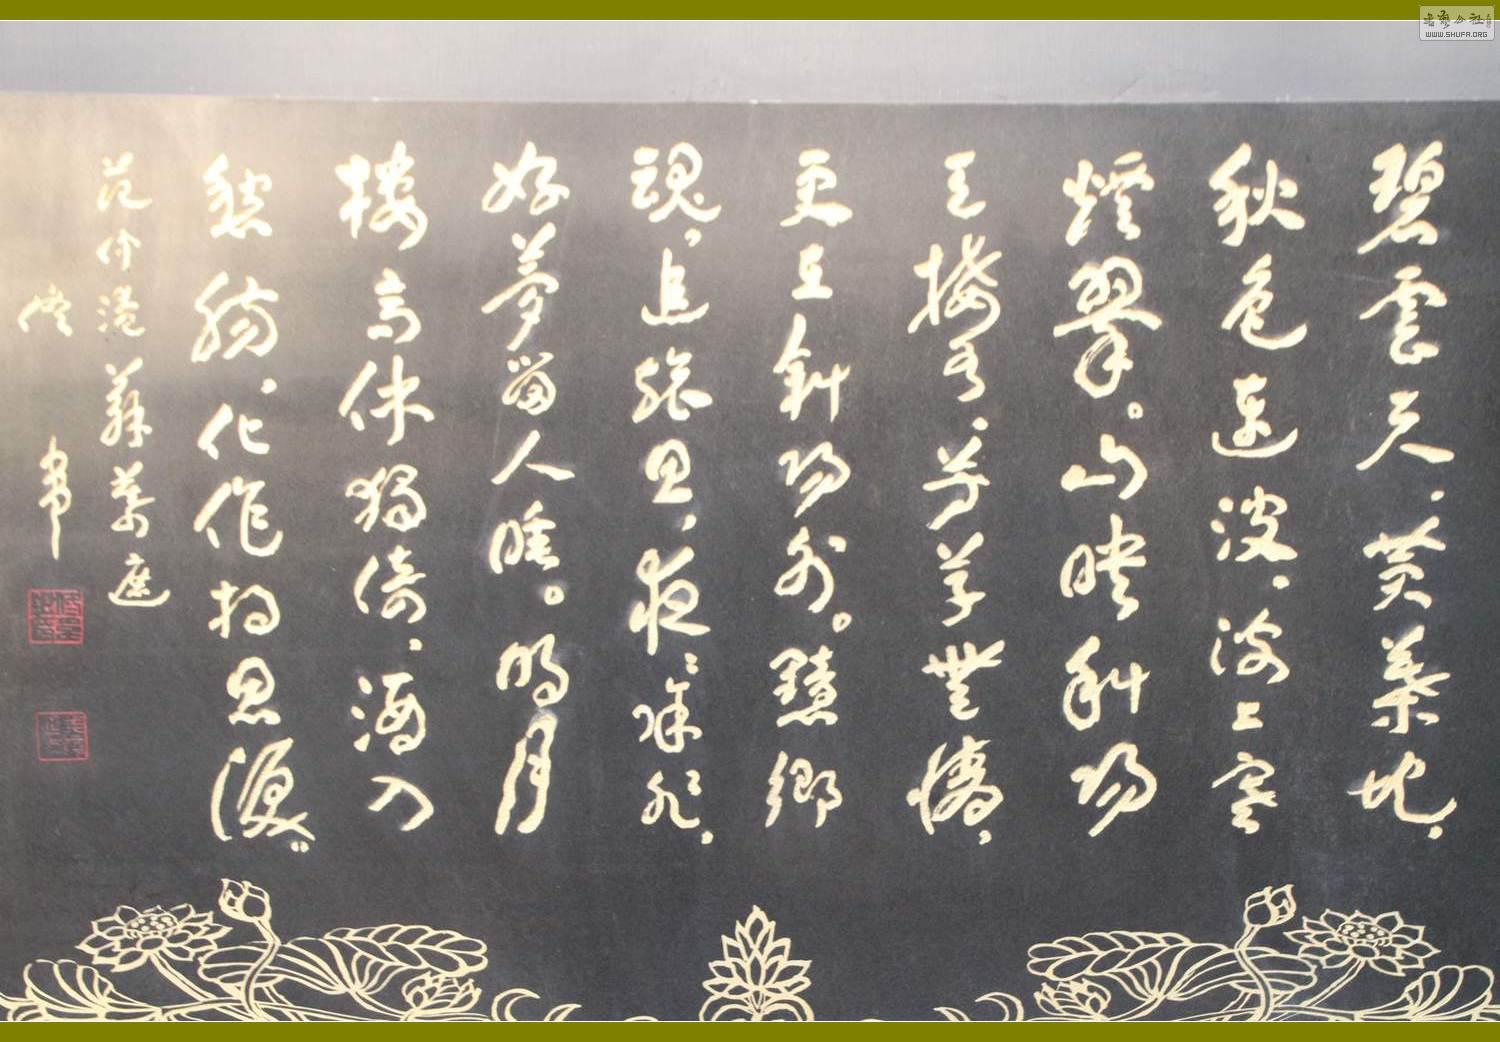 碧雲天,黄葉地,
秋色連波,波上寒
煙翠。山映斜陽
天接水,芳草無情,
更在斜陽外。黯鄉
魂,追旅思,夜〻除非,
好夢留人睡。明月
樓高休獨倚,酒入
愁腸,化作相思淚。
范仲淹蘇幕遮
WWW.SHUFA.ORG